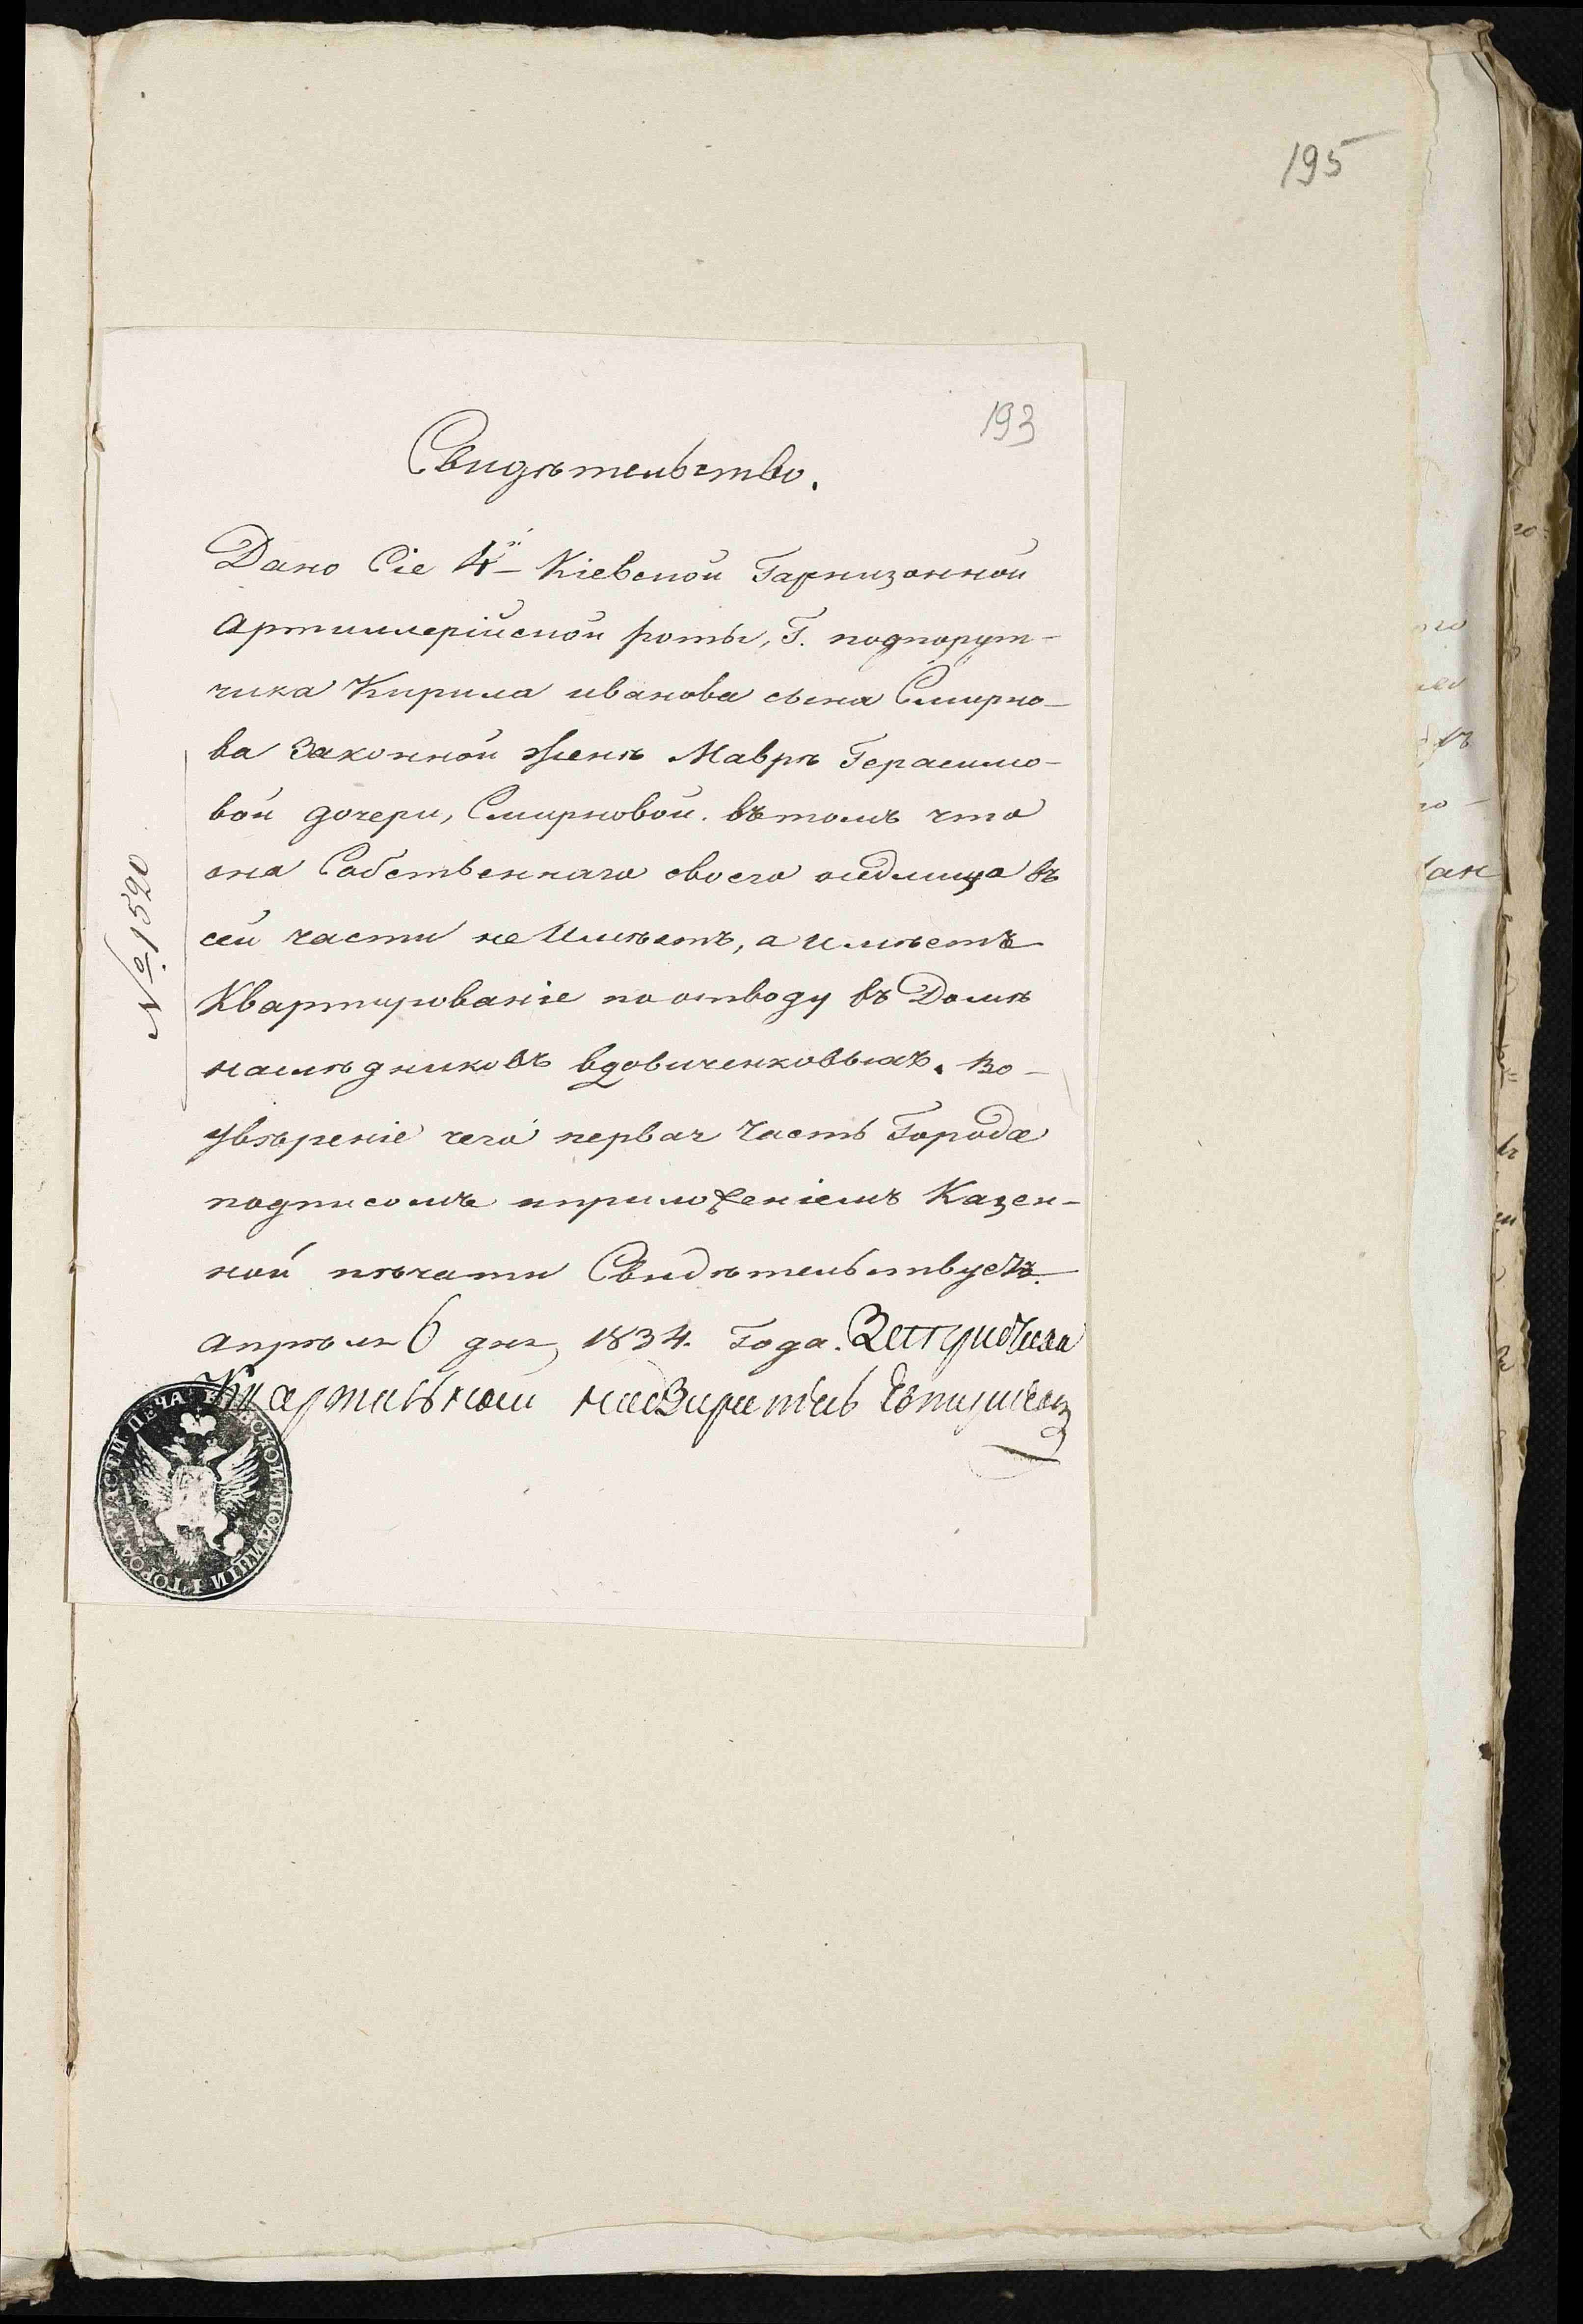 195
193
Свидѣтельство.
Дано Сіе 4й Кіевской Гарнизонной
артиллерійской роты, Г. подпорут-
чика Кирила иванова сына Смирно-
ва Законной Женѣ Маврѣ Герасимо-
вой дочери, Смирновой. въ томъ что
она Собственнаго своего въ
сей части не Имѣетъ, а имѣетъ
Квартированіе по отводу въ Домѣ
наслѣдниковъ вдовиченковыхъ. Во-
увѣреніе чего первая Часть Города
подписомъ и приложеніемъ Казен-
ной пѣчати Свидѣтельствуетъ.
апрѣля 6 дня 1834. Года.
Квартальной надзиратель
№ 1520
ПЕЧА: КІЕВСКОЙ ПОЛИЦІИ I ГОРОД: ЧАСТИ